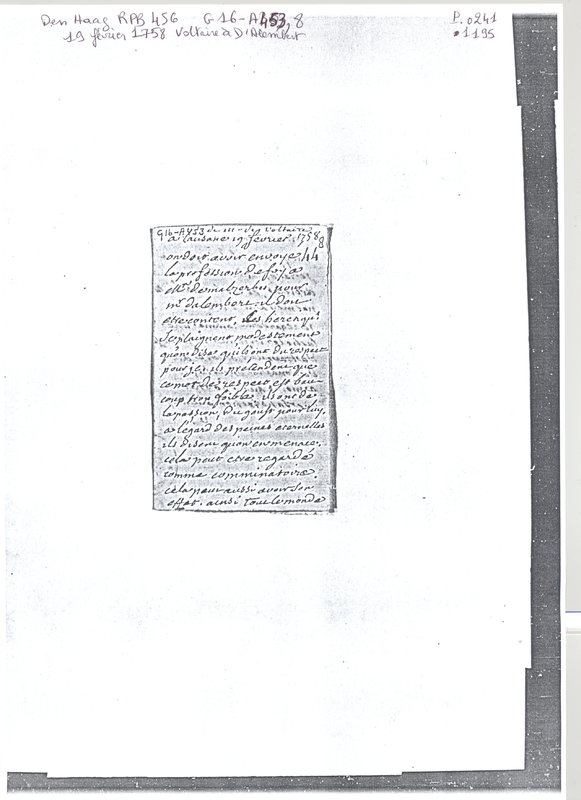 Den Haag RPB 456 G 16-A453,8 P.0241
19 février 1758 Voltaire à D'Alembert 1195
G16-A453 de m. de Voltaire
a lausane 19 février. 1758 8
on doit avoir envoyé 44
la profession de foy a
mr. de malzerbe, pour
mr. dalembert. il doit
etre content. les
se plaignent modestement
qu'on dise qu'ils ont du respect
pour ils pretendent que
ce mot de respect est bau
coup trop foible. ils ont de
la passion, du goust pour luy.
a l'égard des peines eternelles
ils disent qu'on en menace.
cela peut etre regardé
comme comminatoire.
cela peut aussi avoir son
effet. ainsi tout le monde